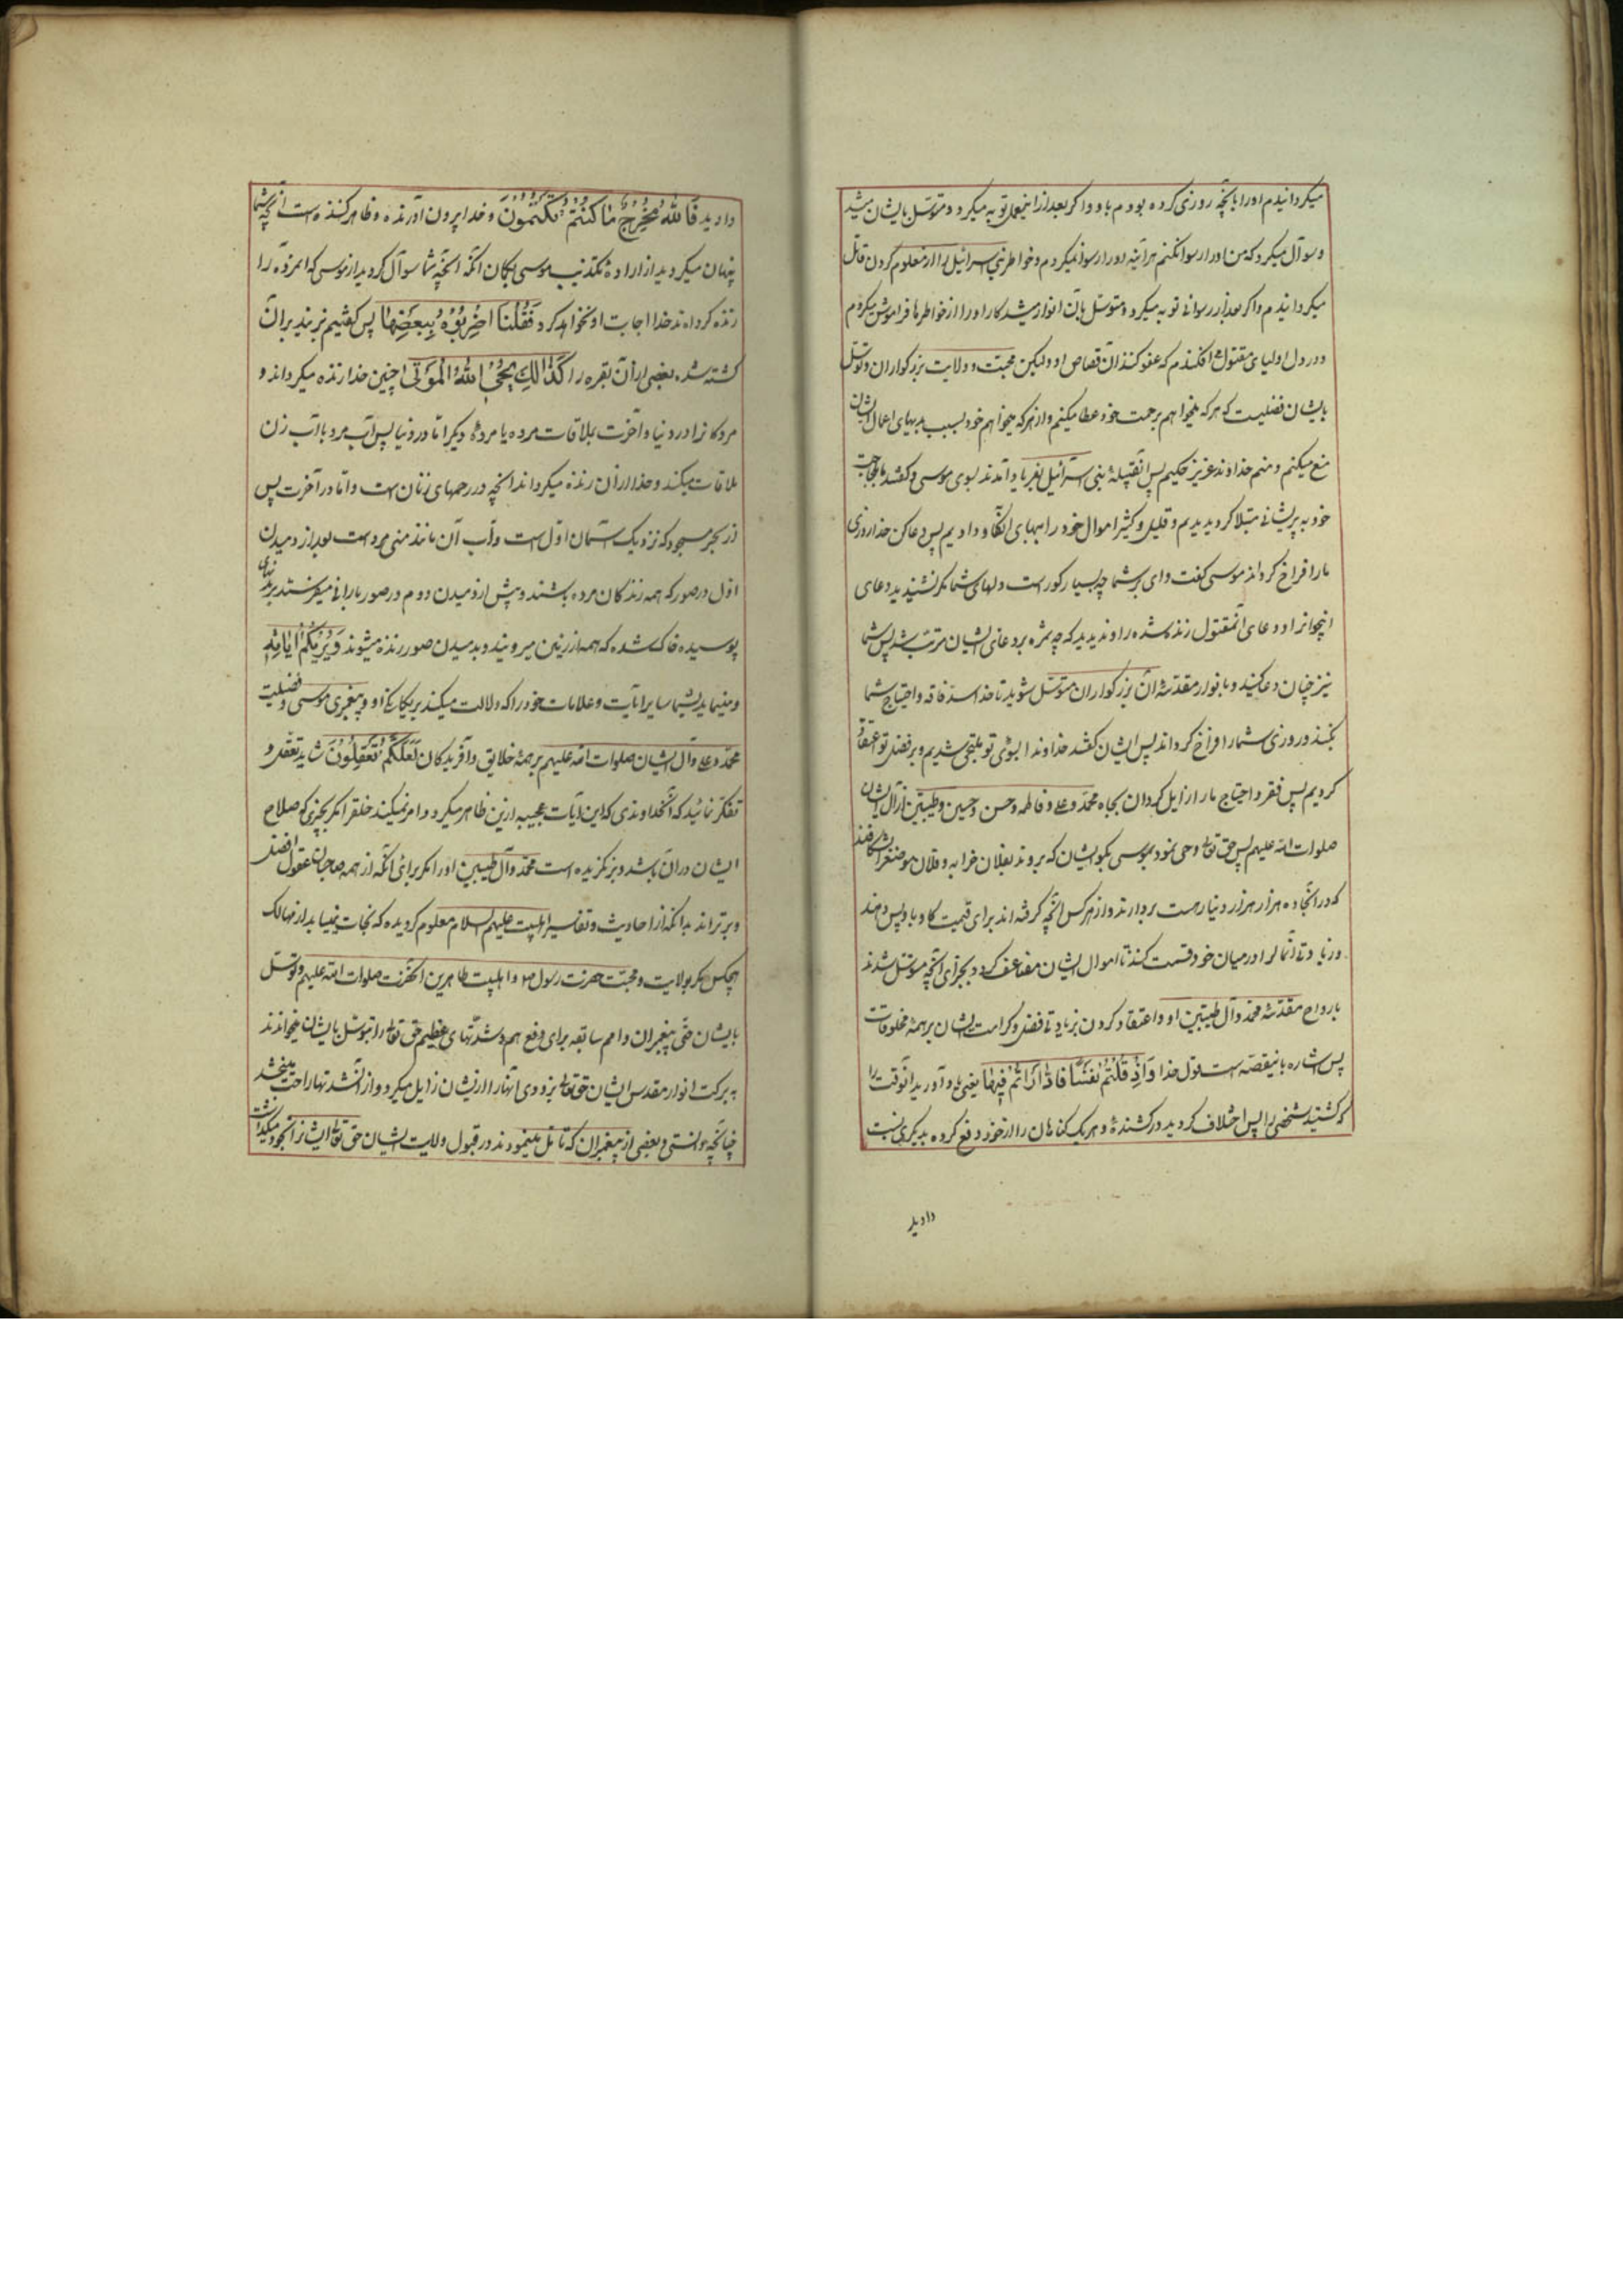 میکردانیدم اورا بانچه روزی کرده بودم باو و اکر بعد از اینفعل توبه میکرد و متوسل بایشان میشد
و سوآل میکرد که من اورا رسوا نکنم هرآینه اورا رسوا نمیکردم و خواطر بنی اسرائیل را از معلوم کردن قاتل
میکردانیدم و اکر بعد از رسوائی توبه میکرد و متوسل بآن انوار میشد کار اورا از خواطرها فراموش میکردم
و در دل اولیای مقتول افکندم که عفو کنند از قصاص او ولیکن محبت و ولایت بزرکواران و توسل
بایشان فضلیست که هرکه میخواهم برحمت خود عطا میکنم و از هرکه میخواهم خود بسبب بدیهای اعمال ایشان
منع میکنم و منم خداوند عزیز حکیم پس انقبیله بنی اسرائیل بفریاد آمدند بسوی موسی و کفتند ما بلجاجت
خود به پریشانی مبتلا کردیدیم و قلیل و کثیر اموال خود را ببهای انکاو دادیم پس دعا کن خدا روزی
مارا فراخ کرداند موسی کفت وای بر شما چه بسیار کور است دلهای شما مکر نشنیدید دعای
انجوانرا و دعای انمقتول زنده شده را و ندیدید که چه ثمره بر دعای ایشان مترتب شد پس شما
نیز چنان دعا کنید و بانوار مقدسه آن بزرکواران متوسل شوید تا خدا سد فاقه و احتیاج شما
بکند و روزی شمارا فراخ کرداند پس ایشان کفتند خداوندا بسوی تو ملتجی شدیم و بر فضل تو اعتماد
کردیم پس فقر و احتیاج مارا زایل کردان بجاه محمد و علی و فاطمه و حسن و حسین و طیبین از آل ایشان
صلوات الله علیهم پس حق تعالی وحی نمود بموسی بکو بایشان که بروند بفلان خرابه و فلان موضعرا بشکافند
که در انجا ده هزار هزار دینار هست بردارند و از هرکس انچه کرفته اند برای قیمت کاو باو پس دهند
و زیادتی انمال را در میان خود قسمت کنند تا اموال ایشان مضاعف کردد بجزای انچه متوسل شدند
بارواح مقدسه محمد و آل طیبین او و اعتقاد کردن بزیادتی فضل و کرامت ایشان بر همه مخلوقات
پس اشاره باینقصه است قول خدا وَاِذْ قَتَلْتُمْ نَفْسًا فَادّٰارَأْتُمْ فِيهَا یعنی یاد آورید انوقت را
که کشتید شخصی را پس اختلاف کردید در کشنده و هریک کناهان را از خود دفع کرده بدیکری نسبت
دادید
دادید فَاللهُ مُخْرِجٌ مٰا كُنْتُمْ تَكْتُمُونَ و خدا بیرون آورنده و ظاهر کننده است انچه شما
پنهان میکردید از اراده تکذیب موسی بکمان انکه انچه شما سوآل کردید از موسی که انمرده را
زنده کرداند خدا اجابت او نخواهد کرد فَقُلْنَا اضْرِبُوهُ بِبَعْضِهَا پس کفتیم بزنید بر آن
کشته شده بعضی از آن بقره را كَذٰلِكَ يُحْيِي اللهُ الْمَوْتٰى اچنین خدا زنده میکرداند و
مردکانرا در دنیا و آخرت بملاقات مرده یا مرده دیکر اما در دنیا پس آب مرد باآب زن
ملاقات میکند و خدا از آن زنده میکرداند انچه در رحمهای زنان است و اما در آخرت پس
از بحر مسجور که نزدیک آسمان اول است و آب آن مانند منی مرد است بعد از دمیدن
اول در صور که همه زندکان مرده باشند و پیش از دمیدن دوم در صور بارانی میفرستد بر بدنهای
پوسیده خاک شده که همه از زمین میرویند و بدمیدن صور زنده میشوند وَيُرِيكُمْ اٰيٰاتِهِ
و مینماید بشما سایر آیات و علامات خود را که دلالت میکند بر یکانکی او و پیغمبری موسی و فضیلت
محمد و علی و آل ایشان صلوات الله علیهم بر همه خلایق و آفریدکان لَعَلَّكُمْ تَعْقِلُونَ شاید تعقل و
تفکر نمائید که انخداوندی که این آیات عجیبه ازین ظاهر میکردد امر نمیکند خلق را مکر بچیزی که صلاح
ایشان در آن باشد و بر نکزیده است محمد و آل طیبین اورا مکر برای انکه از همه صاحبان عقول افضل
و برتراند بدانکه از احادیث و تفاسیر اهلبیت علیهم السلام معلوم کردیده که نجات نمییابد از مهالک
هیچکس مکر بولایت و محبت حضرت رسول ص و اهلبیت طاهرین انحضرت صلوات الله علیهم و توسل
بایشان حتی پیغمبران و امم سابقه برای دفع هم و شدتهای عظیم حق تعالی را بتوسل بایشان میخواندند
به برکت انوار مقدس ایشان حق تعالی بزودی آنهارا ازیشان زایل میکرد و از انشدتها راحت میبخشد
چنانچه دانستی و بعضی از پیغمبران که تأمل مینمودند در قبول ولایت ایشان حق تعالی ایشانرا بخود میکذاشت